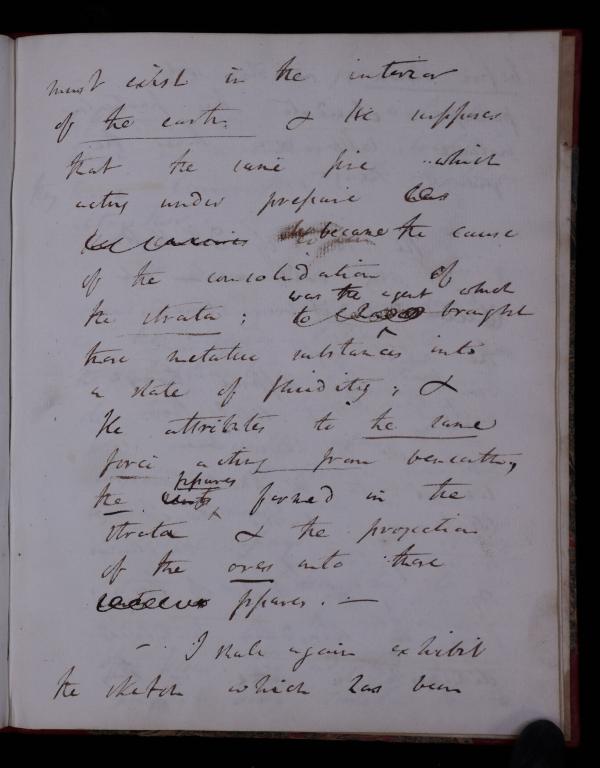 must exist in the interior
of the earth. & He supposes
that the same fire which
acting under pressure
became the cause
of the consolidation of
was the agent which
the strata; to brought
these metallic substances into
a state of fluidity; &
He attributes to the same
force acting from beneath,
fissures
the formed in the
strata & the projection
of the ores into these
fissures. —
— I shall again exhibit
the sketch which has been